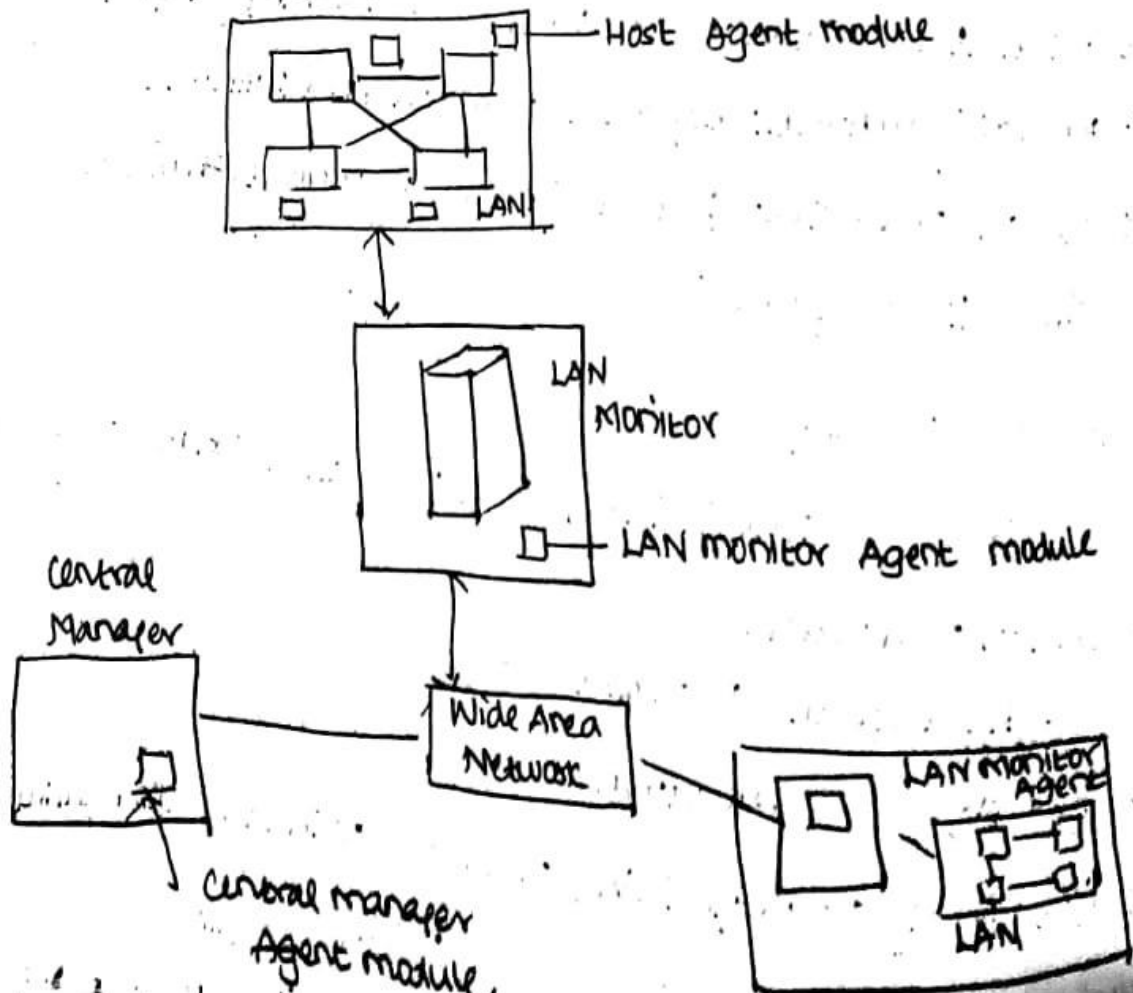 Host Agent module.
LAN
LAN
Monitor
LAN monitor Agent module
Central
Manager
Wide Area
Network
LAN monitor
Agent
LAN
Central manager
Agent module.